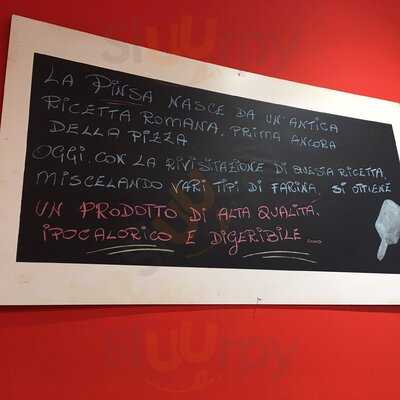 sluurpy
LA PINSA NASCE DA UN'ANTICA
RICETTA ROMANA, PRIMA ANCORA
DELLA PIZZA
OGGI, CON LA RIVISITAZIONE DI QUESTA RICETTA,
MISCELANDO VARI TIPI DI FARINA, SI OTTIENE
UN PRODOTTO DI ALTA QUALITÀ,
IPOCALORICO E DIGERIBILE....
sluurpy